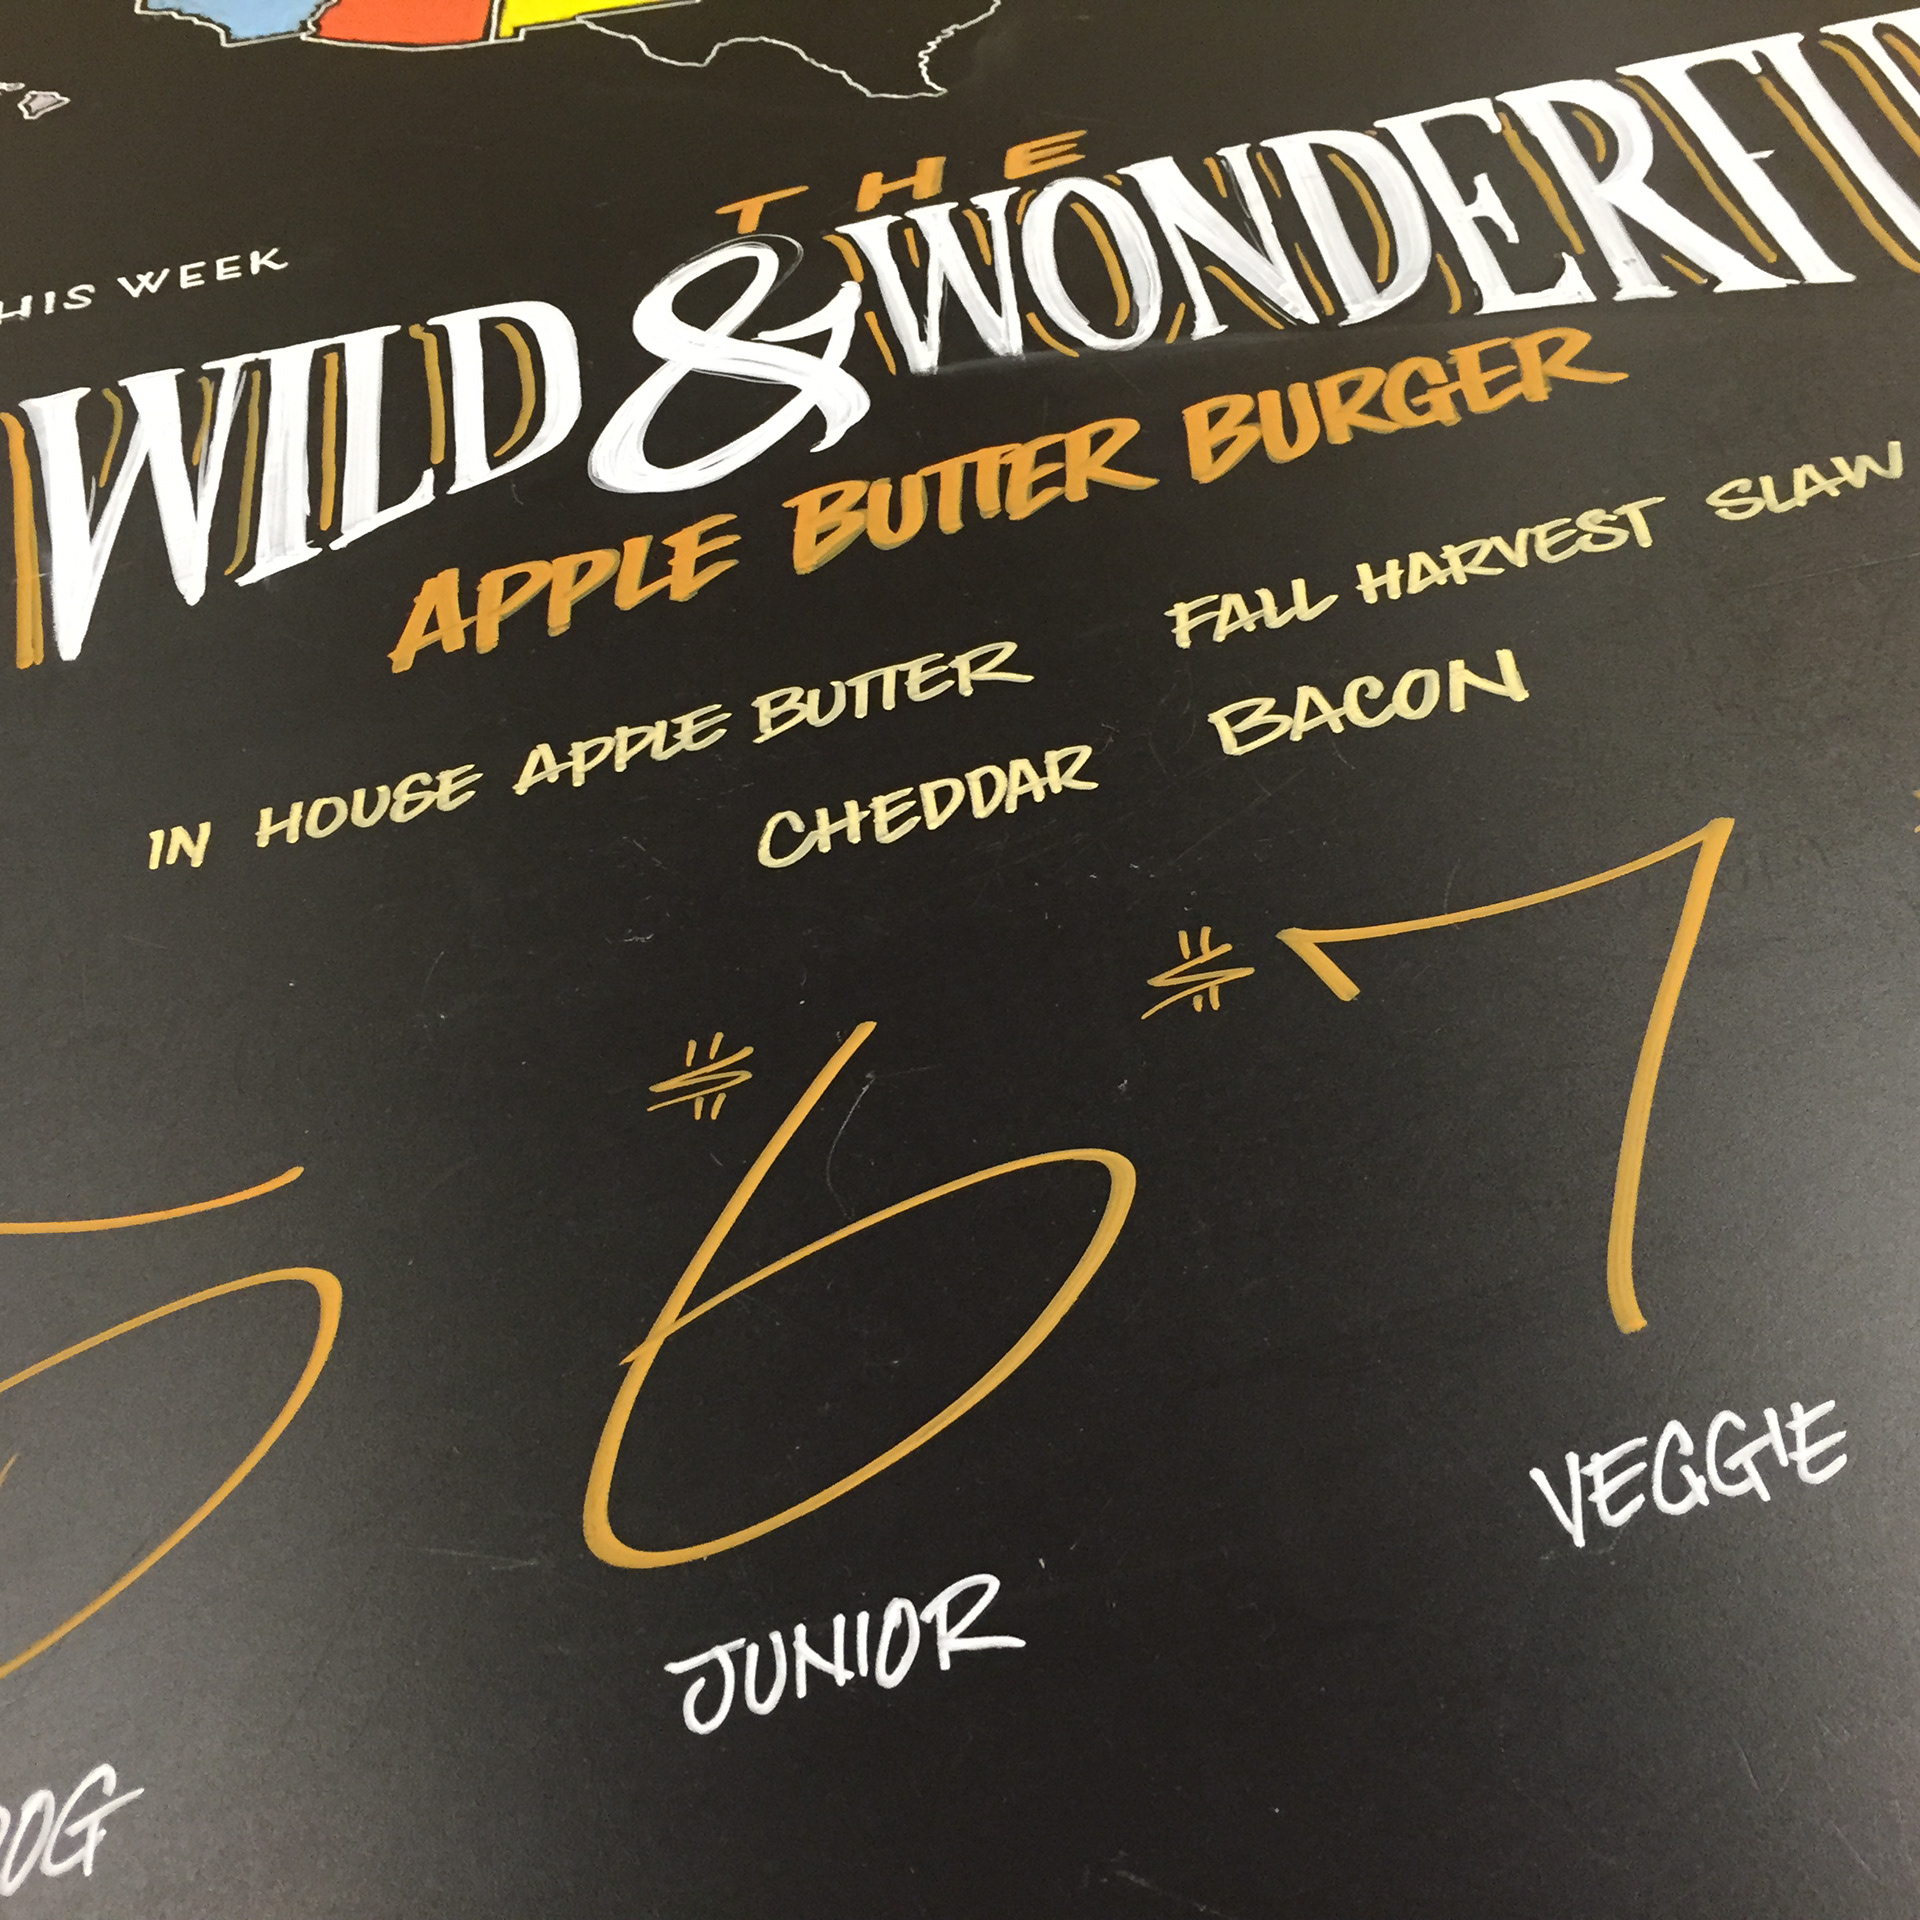 THE
THIS WEEK
WILD & WONDERFUL
APPLE BUTTER BURGER
IN HOUSE APPLE BUTTER FALL HARVEST SLAW
CHEDDAR BACON
5 $6 $7
DOG JUNIOR VEGGIE